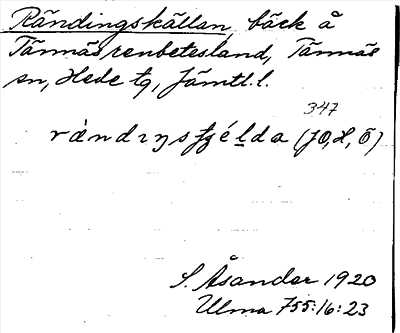 Rändingskällan, bäck å
Tännäs renbetesland, Tännäs
sn, Hede tg, Jämtl. l.
347
ràndıŋsʃɟélda (JO, H, Ö)
S. Åsander 1920
Ulma 755:16:23